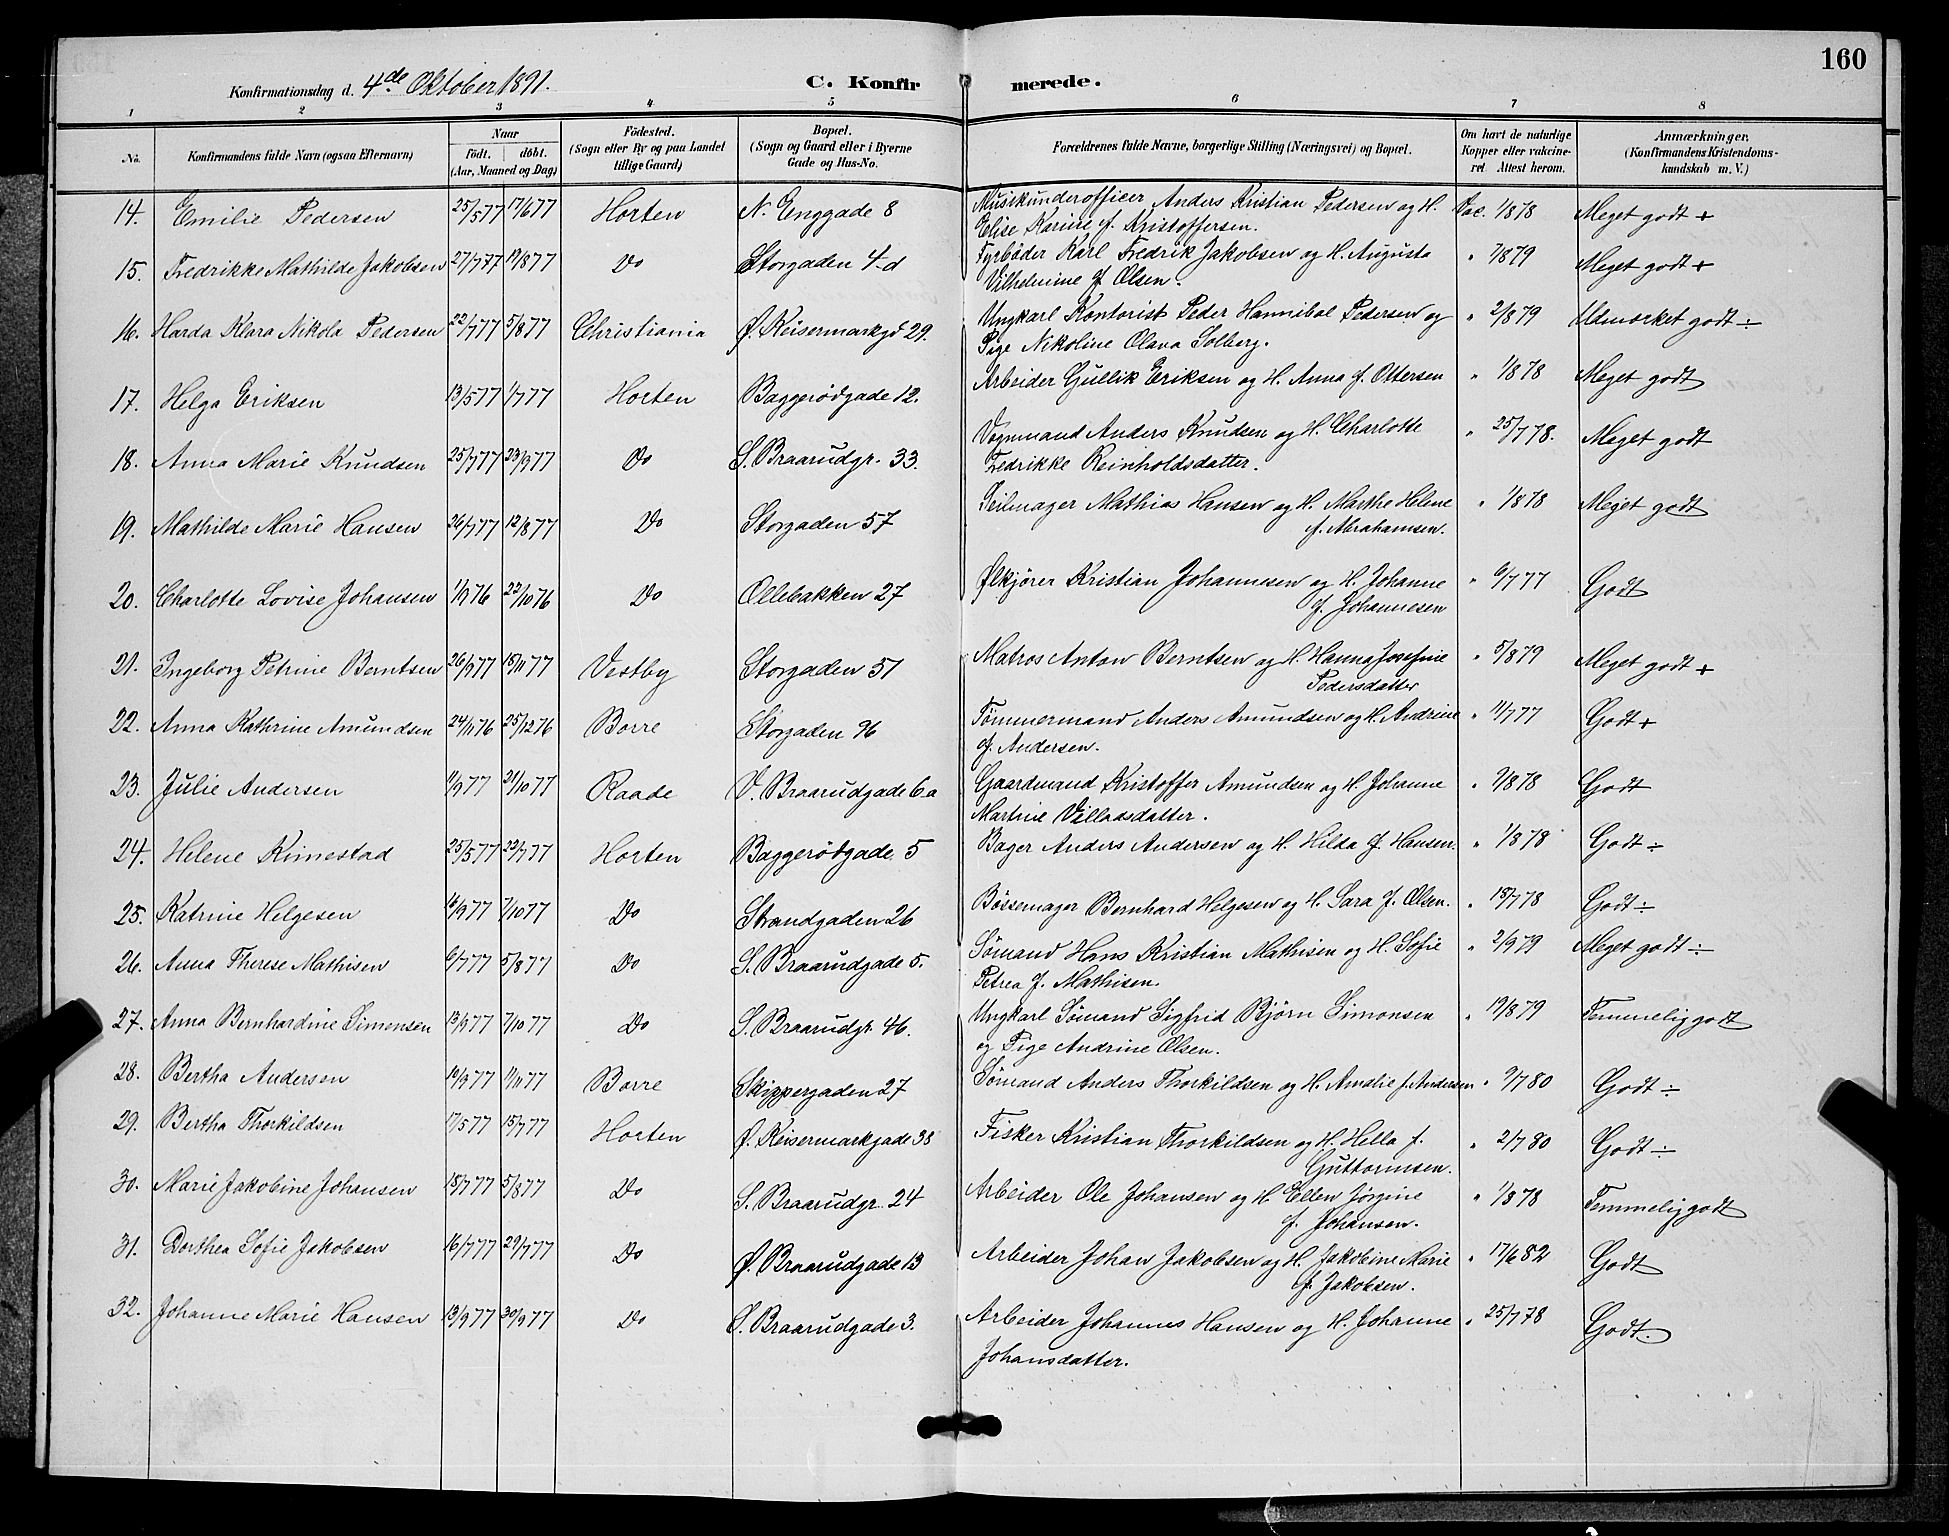 160
Konfirmationsdag d. 4de Oktober 1891.
C. Konfirmerede.
1 2 3 4 5 6 7 8
No. | Konfirmandens fulde Navn (ogsaa Efternavn) | Naar födt. döbt. (Aar, Maaned og Dag) | Födested. (Sogn eller By og paa Landet tillige Gaard) | Bopæl. (Sogn og Gaard eller i Byerne Gade og Hus-No. | Forældrenes fulde Navne, borgerlige Stilling (Næringsvei) og Bopæl. | Om havt de naturlige Kopper eller vakcineret Attest herom. | Anmærkninger. (Konfirmandens Kristendomskundskab m. V.)
14. Emilie Pedersen 25/5 77 17/6 77 Horten N. Enggade 8 Musikunderofficer Anders Kristian Pedersen og H. Vac. 1/8 78 Meget godt +
Elise Karine f. Kristoffersen.
15. Fredrikke Mathilde Jakobsen 27/7 77 19/8 77 Do Storgaden 4 d Fyrbøder Karl Fredrik Jakobsen og H. Augusta " 7/8 79 Meget godt +
Vilhelmine f. Olsen.
16. Harda Klara Nikola Pedersen 22/7 77 5/8 77 Christiania Ø. Keisermarkgd 29. Ungkarl Kontorist Peder Hannibal Pedersen og " 2/8 79 Udmærket godt ÷
Pige Nikoline Olava Solberg.
17. Helga Eriksen 13/5 77 1/7 77 Horten Baggerødgade 12. Arbeider Gullik Eriksen og H. Anna f. Ottersen " 1/8 78 Meget godt
18. Anna Marie Knudsen 25/7 77 23/9 77 Do S. Braarudgr. 33. Vognmand Anders Knudsen og H. Charlotte " 25/7 78. Meget godt
Fedrikke Reinholdsdatter.
19. Mathilde Marie Hansen 26/7 77 12/8 77 Do Storgaden 57 Seilmager Mathias Hansen og H. Marthe Helene " 1/8 78 Meget godt
f. Abrahamsen.
20. Charlotte Lovise Johansen 1/9 76 22/10 76 Do Ollebakken 27 Ølkjører Kristian Johannesen og H. Johanne " 6/7 77 Godt
f. Johannesen
21. Ingeborg Petrine Berntsen 26/9 77 18/11 77 Vestby Storgaden 51 Matros Anton Berntsen og H. Hanna Josefine " 5/8 79 Meget godt +
Pedersdatter
22. Anna Kathrine Amundsen 24/11 76 25/12 76 Borre Storgaden 96 Tømmermand Anders Amundsen og H. Andrine " 11/7 77 Godt +
f. Andersen.
23. Julie Andersen 11/9 77 21/10 77 Raade V. Braarudgade 6a Gaardmand Kristoffer Amundsen og H. Johanne " 9/8 78 Godt
Martine Villaasdatter.
24. Helene Kimestad 25/5 77 22/7 77 Horten Baggerødgade 5 Bager Anders Andersen og H. Hilda f. Hansen. " 1/8 78 Godt ÷
25. Katrine Helgesen 16/9 77 7/10 77 Do Strandgaden 26 Bøssemager Bernhard Helgesen og H. Sara f. Olsen. " 18/7 78 Godt ÷
26. Anna Therese Mathisen 6/7 77 5/8 77 Do S. Braarudgade 5. Sømand Hans Kristian Mathisen og H. Sofie " 2/9 79 Meget godt ÷
Petrea f. Mathisen.
27. Anna Bernhardine Simonsen 13/9 77 7/10 77 Do S. Braarudgr. 46. Ungkarl Sømand Sigfrid Bjørn Simonsen " 19/8 79 Temmelig godt
og Pige Andrine Olsen.
28. Bertha Andersen 10/9 77 11/11 77 Borre Skippergaden 27 Sømand Anders Thorkildsen og H. Amalie f. Andersen " 9/7 80 Godt ÷
29. Bertha Thorkildsen 17/5 77 15/7 77 Horten Ø. Keisermarkgade 38 Fisker Kristian Thorkildsen og H. Hella f. " 2/7 80 Godt ÷
Guttormsen.
30. Marie Jakobine Johansen 18/7 77 5/8 77 Do S. Braarudgr. 24 Arbeider Ole Johansen og H. Ellen Jørgine " 1/8 78 Temmelig godt
f. Johansen.
31. Dorthea Sofie Jakobsen 16/7 77 29/7 77 Do Ø. Braarudgade 13 Arbeider Johan Jakobsen og H. Jakobine Marie " 17/6 82 Godt
f. Jakobsen.
32. Johanne Marie Hansen 13/9 77 30/9 77 Do Ø. Braarudgade 3. Arbeider Johannes Hansen og H. Johanne " 25/7 78 Godt.
Johansdatter.